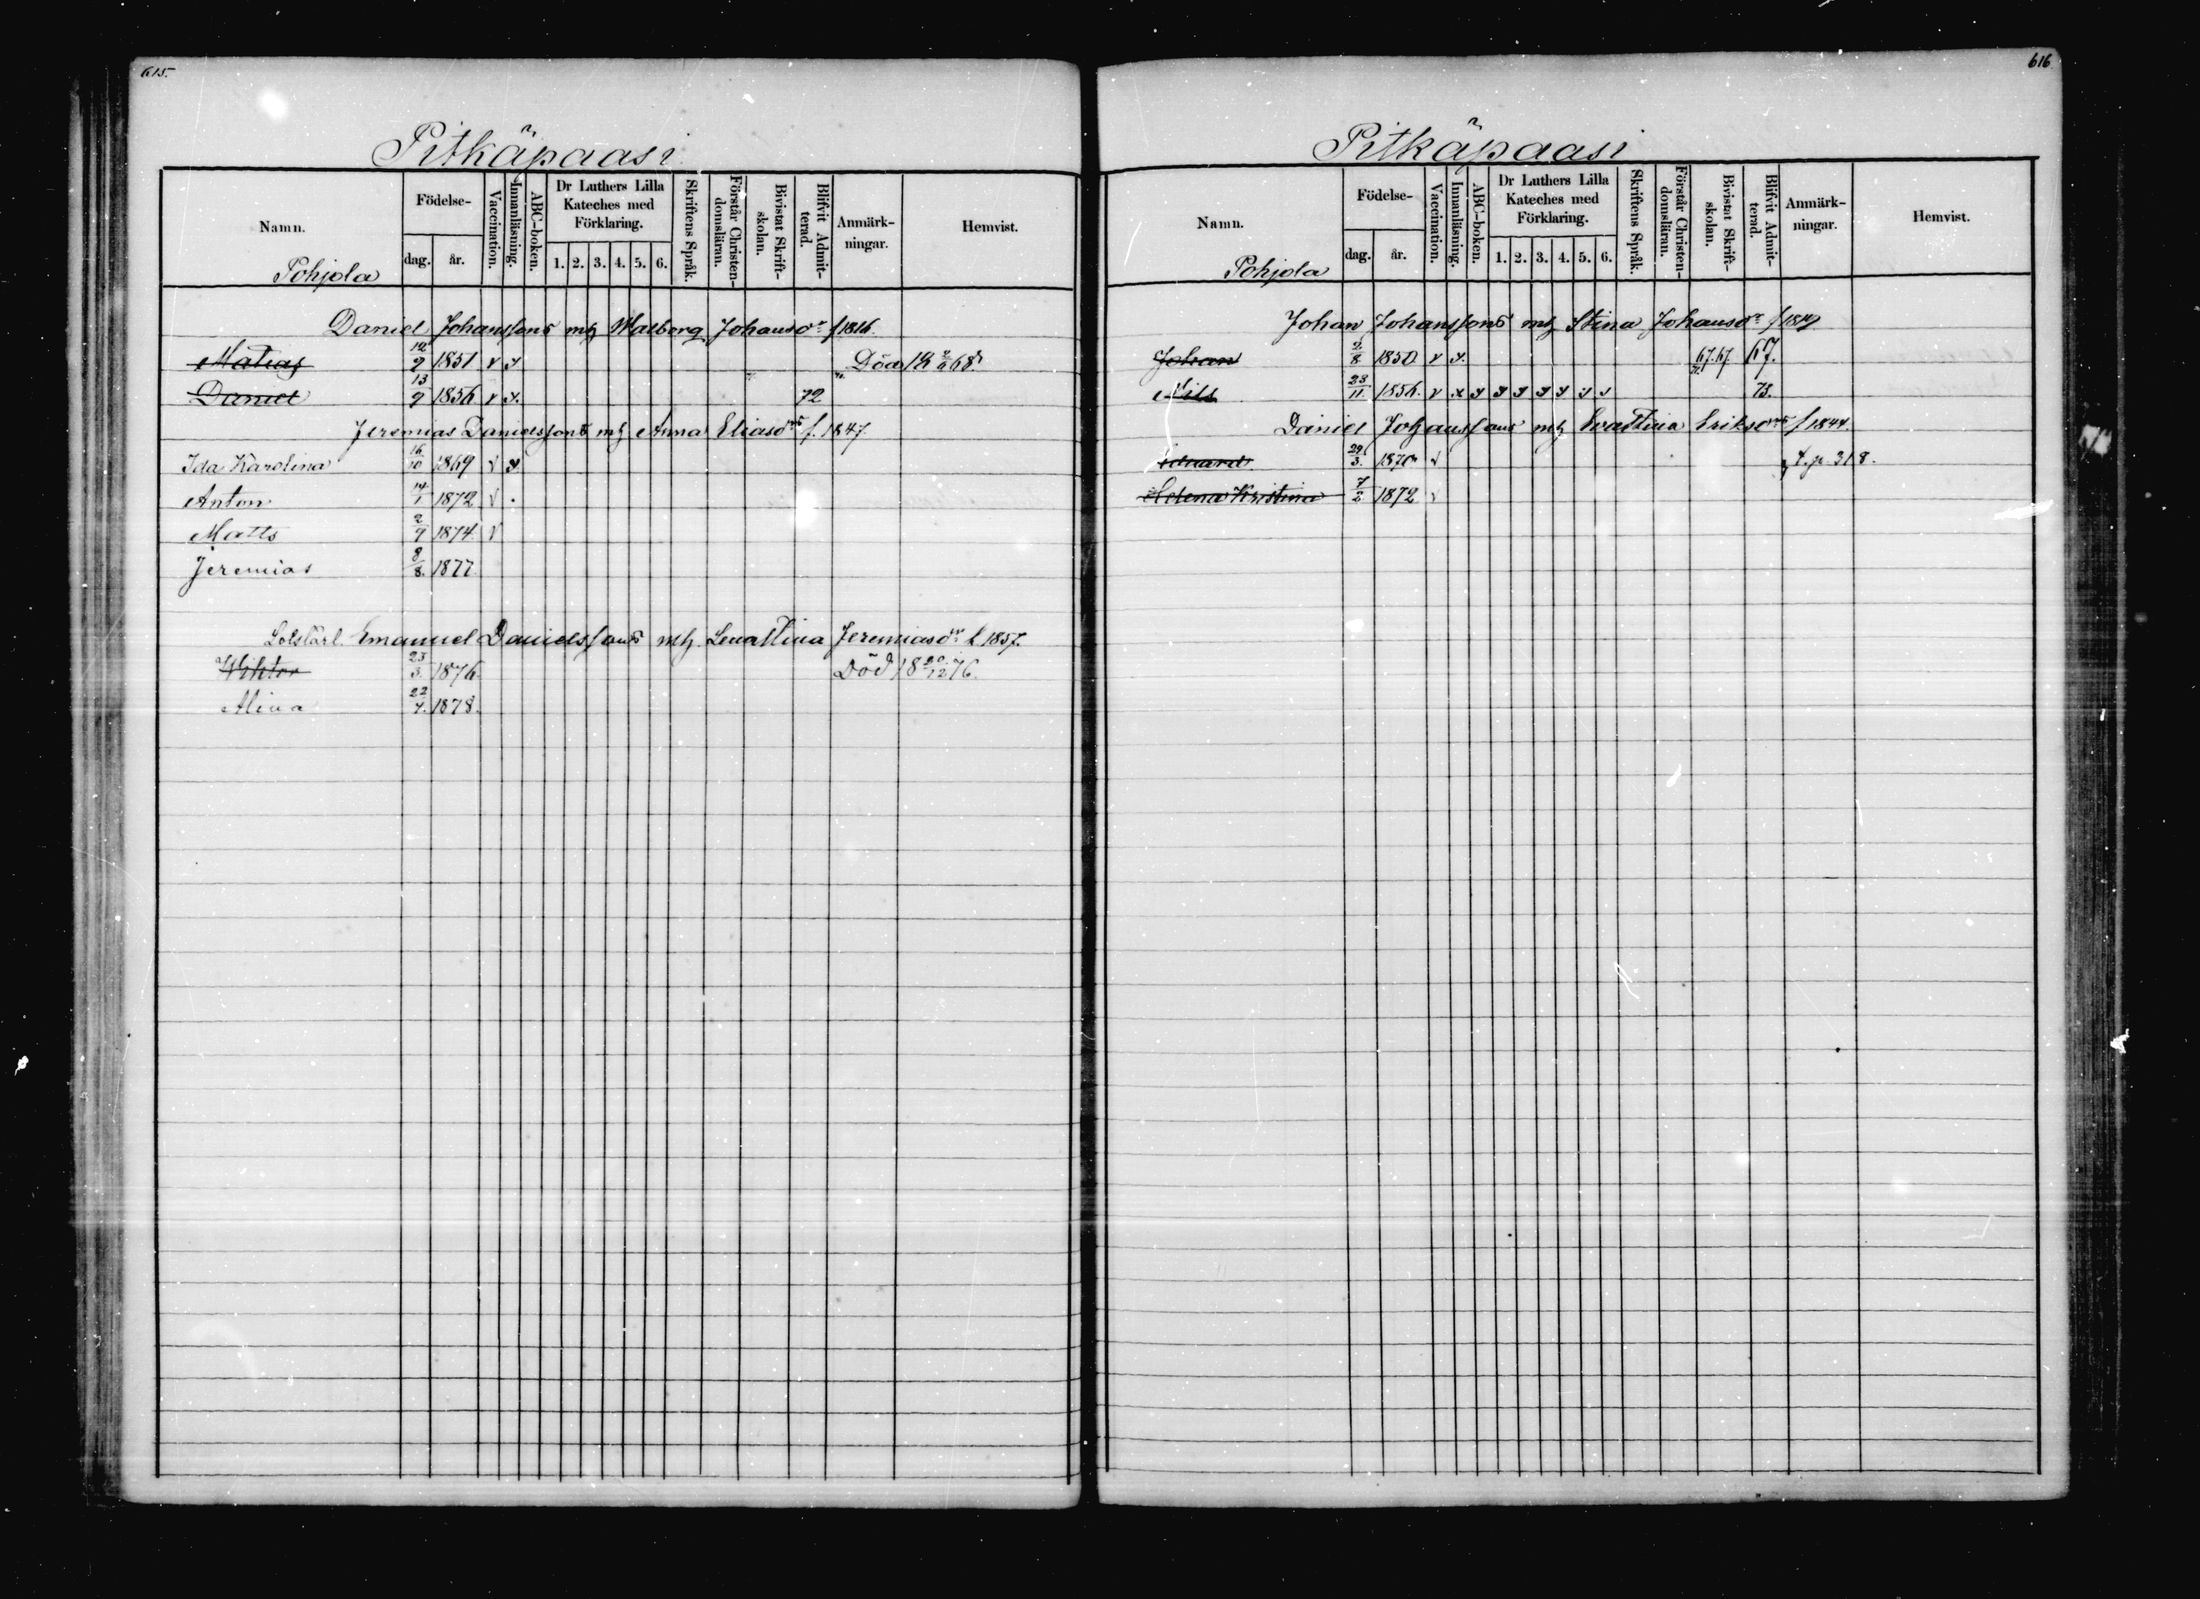 615.
Pitkäpaasi
Namn.
Födelse-
dag.
år.
Vaccination.
Innanläsning.
ABC-boken.
Dr Luthers Lilla
Kateches med
Förklaring.
1. 2. 3. 4. 5. 6.
Skriftens Språk.
Förstår Christen-
domsläran.
Bivistat Skrift-
skolan.
Blifvit Admit-
terad.
Anmärk-
ningar.
Hemvist.
Pohjola
Daniel Johanssons mh Walborg Johansdr f 1816.
Matias 12/9 1851 v x Död 18 68
Daniel 13/9 1856 v x. 72
Jeremias Danielssons mh Anna Eliasdr f. 1847.
Ida Karolina 16/10 1869 v x
Anton 14/1 1872 v .
Matts 2/9 1874 v
Jeremias 8/8. 1877.
Emanuel Danielssons mh. Lenastina Jeremiasdr f. 1857.
Wiktor 23/3. 1876. Död 18 20/12 76.
Alina 22/7. 1878.
616
Pitkäpaasi
Namn.
Födelse-
dag.
år.
Vaccination.
Innanläsning.
ABC-boken.
Dr Luthers Lilla
Kateches med
Förklaring.
1. 2. 3. 4. 5. 6.
Skriftens Språk.
Förstår Christen-
domsläran.
Bivistat Skrift-
skolan.
Blifvit Admit-
terad.
Anmärk-
ningar.
Hemvist.
Pohjola
Johan Johanssons mh Stina Johansdr f
Johan 2/8 1850 v x. 67. 67. 67.
Nils 23/11 1856. v x 73.
Daniel Johanssons mh Evastina Eriksdr f 1844.
Eduard 29/3. 1870 v t. p. 318.
Helena Kristina 7/2 1872 v